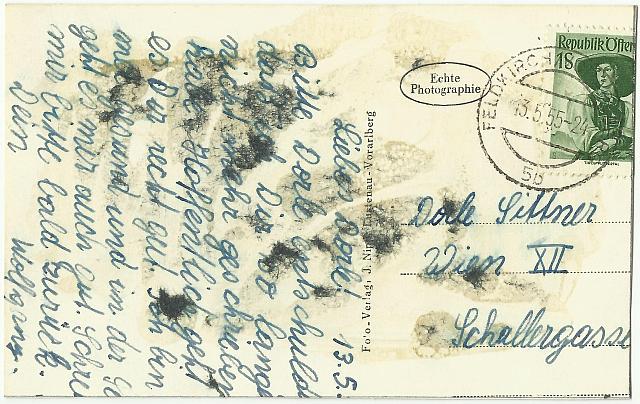 13.5.
Liebe Dorli!
Bitte Dorli entschuld
daß ich Dir so lange
nicht mehr geschrieben
habe. Hoffentlich geht
es Dir recht gut. Ich bin
gesund und in der
geht es mir auch gut. Schrei
mir bitte bald zurück.
Dein
Wolfgang.
Echte
Photographie
Foto-Verlag, J. Lustenau-Vorarlberg
Republik Öster
18
FELDKIRCH
13.5.55-24
5b
Dorle Sittner
Wien XII
Schallergasse